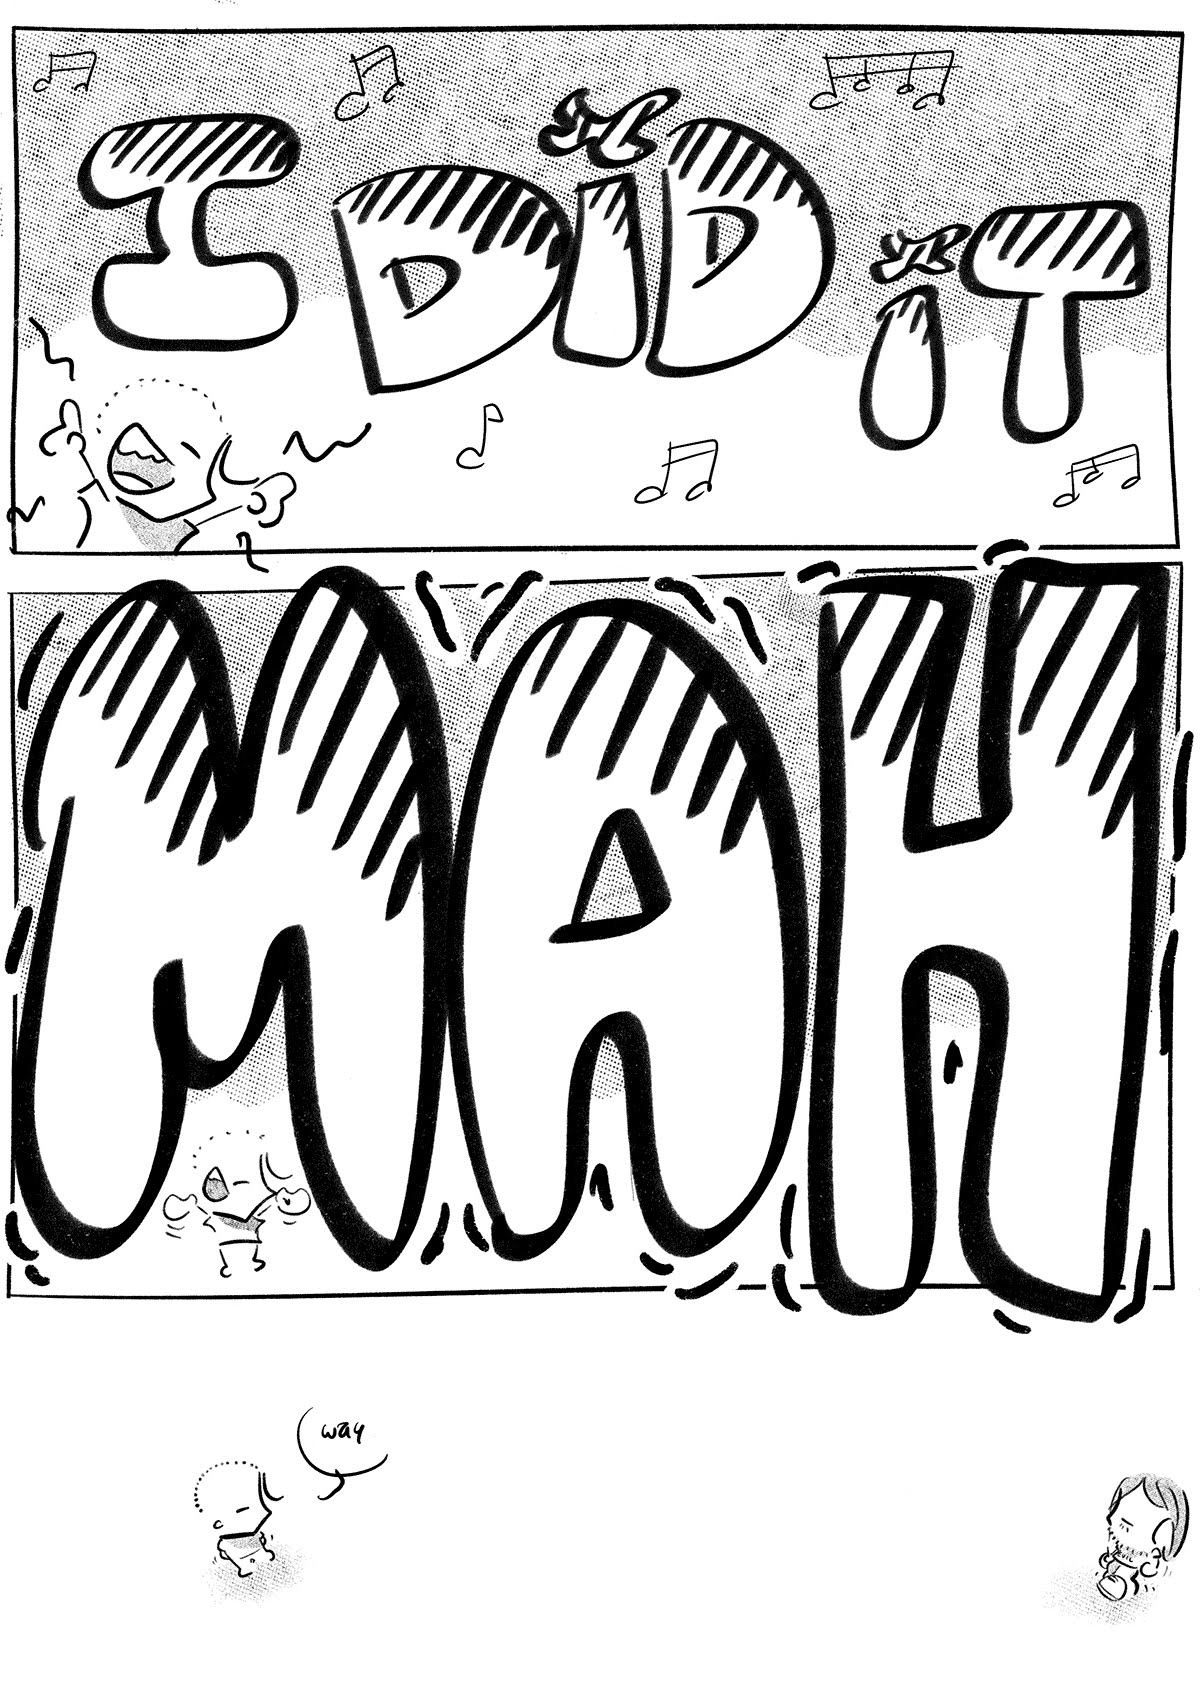 I DiD iT
MAH
way